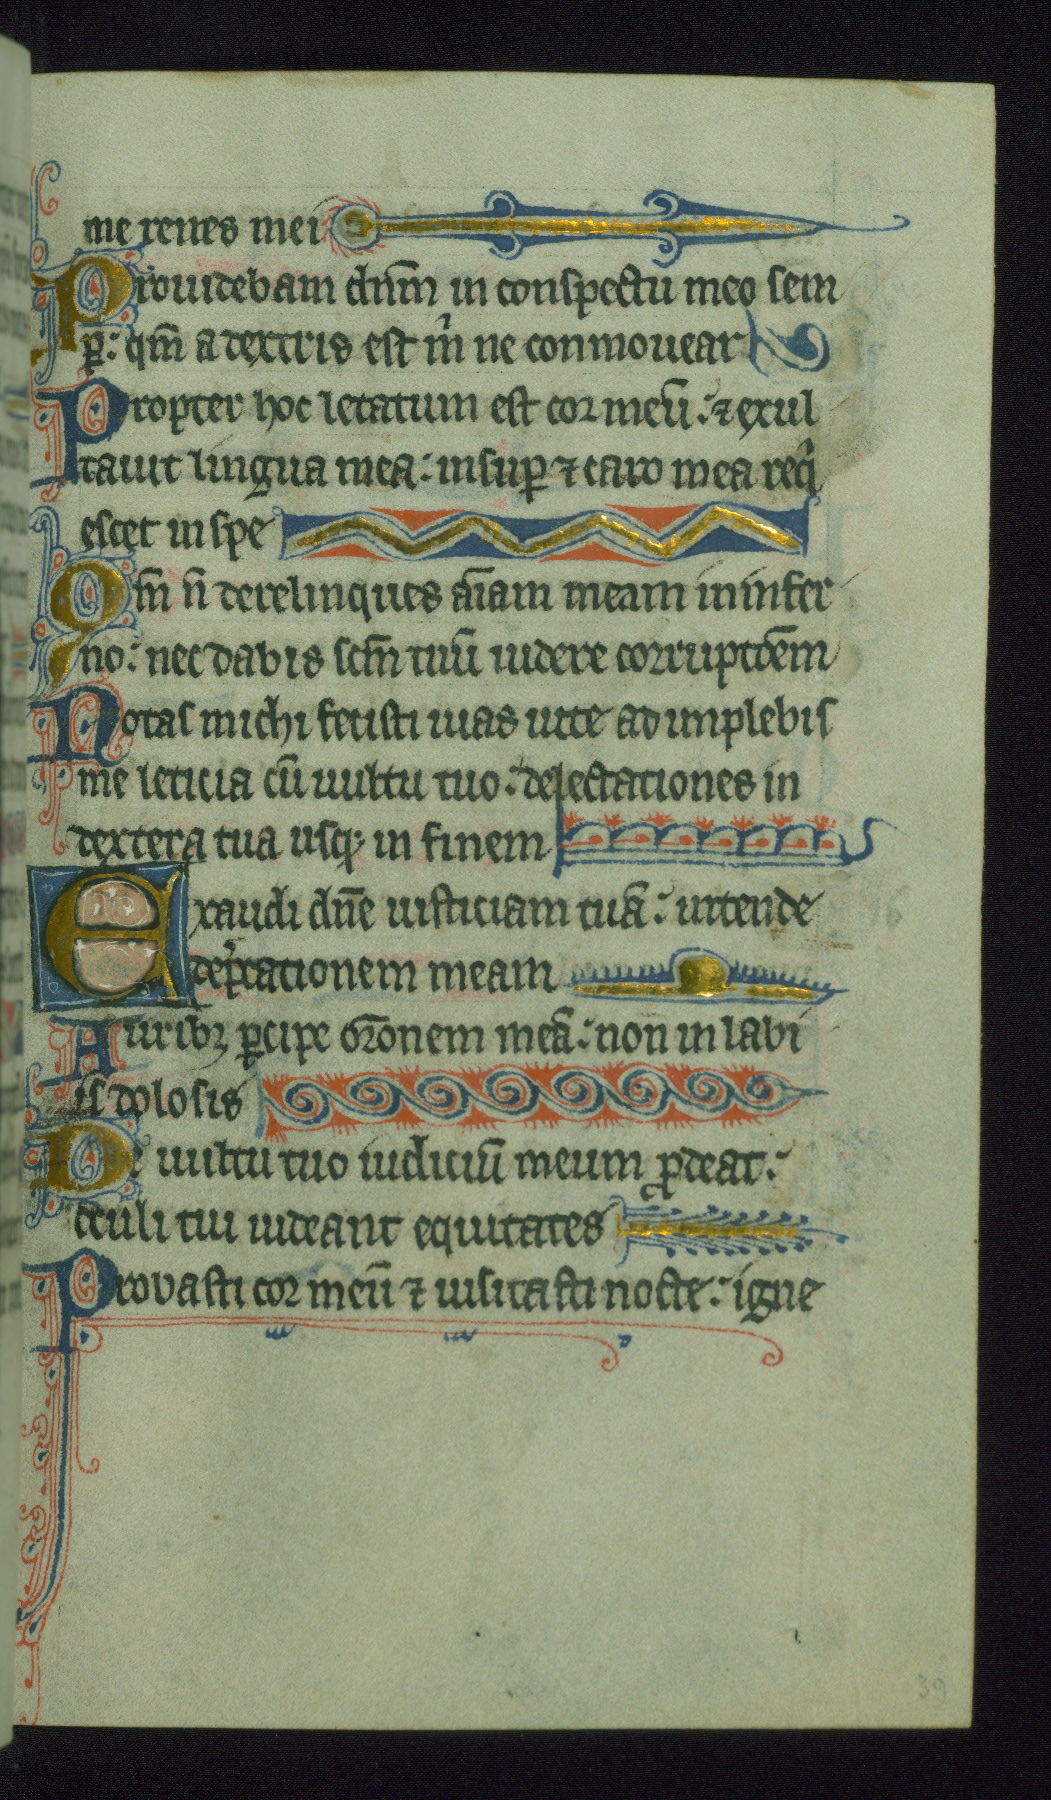 me renes mei
Prouidebam dn̄m in conspectu meo sem
ꝑ: qm̄ a dextris est m̉ ne conmouear
Propter hoc letatum est cor meū: ⁊ exul
tauit lingua mea: insuꝑ ⁊ caro mea req̉
escet in spe
Qm̄ n̄ derelinques aīam meam in infer
no: nec dabis scm̄ tuū uidere corruptōem
Notas michi fecisti uias uite ad implebis
me leticia cū uultu tuo: delectationes in
dextera tua usq; in finem
Exaudi dn̄e iusticiam tuā: intende
dep̉cationem meam
Auribꝫ ꝑcipe orōnem meā: non in labi
is dolosis
De uultu tuo iudiciū meum ꝓdeat:
oculi tui uideant equitates
Probasti cor meū ⁊ uisitasti nocte: igne
39